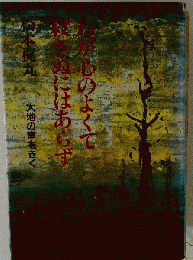 わが心のよくて
殺さぬにはあらず
大地の声をきく